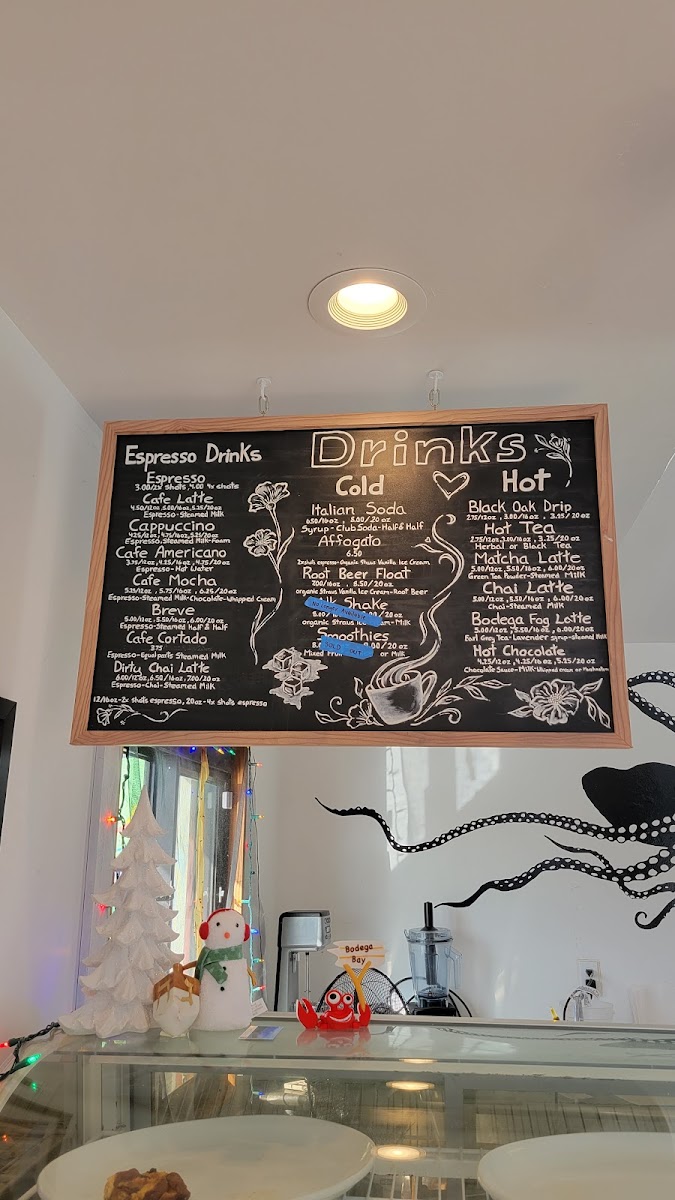 Drinks
Espresso Drinks
Espresso
3.00/2x shots, 4.00 4x shots
Cafe Latte
4.50/12oz, 5.00/16oz, 5.25/20oz
Espresso-Steamed Milk
Cappuccino
4.25/12oz, 4.75/16oz, 5.25/20oz
Espresso, Steamed Milk-Foam
Cafe Americano
3.75/12oz, 4.25/16oz, 4.75/20oz
Espresso-Hot Water
Cafe Mocha
5.25/12oz, 5.75/16oz, 6.25/20oz
Espresso-Steamed Milk-Chocolate-Whipped Cream
Breve
5.00/12oz, 5.50/16oz, 6.00/20oz
Espresso-Steamed Half & Half
Cafe Cortado
3.75
Espresso-Equal parts Steamed Milk
Dirty Chai Latte
6.00/12oz, 6.50/16oz, 7.00/20oz
Espresso-Chai-Steamed Milk
12/16oz-2x shots espresso, 20oz-4x shots espresso
Cold
Italian Soda
6.50/16oz, 8.00/20oz
Syrup-Club Soda-Half & Half
Affogato
6.50
2x shots espresso-organic Straus Vanilla Ice Cream
Root Beer Float
7.00/16oz, 8.50/20oz
organic Straus Vanilla Ice Cream-Root Beer
Shake
/20oz
organic Straus Ice Cream-Milk
Smoothies
SOLD OUT
/20oz
Mixed or Milk
Hot
Black Oak Drip
2.75/12oz, 3.00/16oz, 3.25/20oz
Hot Tea
2.75/12oz, 3.00/16oz, 3.25/20oz
Herbal or Black Tea
Matcha Latte
5.00/12oz, 5.50/16oz, 6.00/20oz
Green Tea Powder-Steamed Milk
Chai Latte
5.00/12oz, 5.50/16oz, 6.00/20oz
Chai-Steamed Milk
Bodega Fog Latte
5.00/12oz, 5.50/16oz, 6.00/20oz
Earl Grey Tea-Lavender syrup-steamed Milk
Hot Chocolate
4.25/12oz, 4.75/16oz, 5.25/20oz
Chocolate Sauce-Milk-Whipped cream or Marshmallow
Bodega
Bay